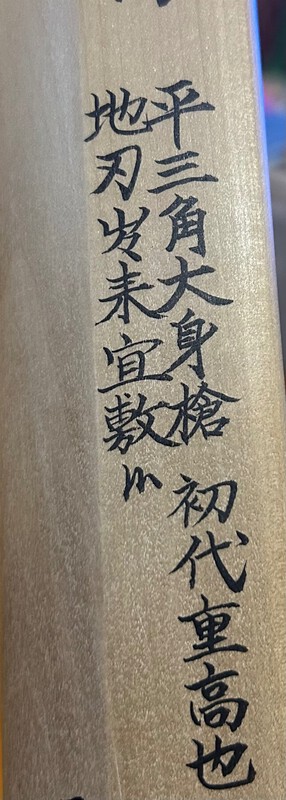 平三角大身槍 初代重高也
地刃出来宜敷